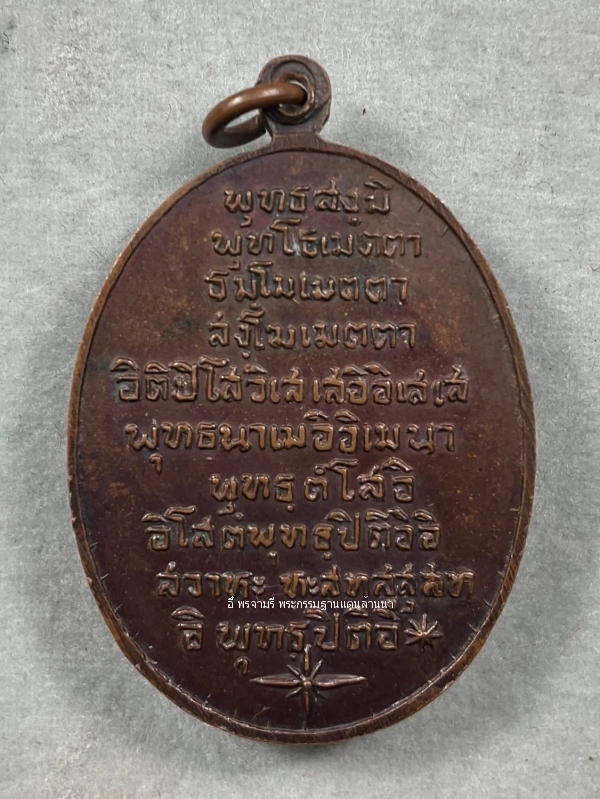 พุทธสงฺมิ
พุทฺโธเมตตา
ธมฺโมเมตตา
สงฺโฆเมตตา
อิติปิโสวิเสเสอิอิเสเส
พุทธนาเมอิอิเมนา
พุทธฺตํโสอิ
อิโสตํพุทธฺปิติอิอิ
สวาหะ หะสหสสุสห
อี๊ พรจามรี พระกรรมฐานแดนล้านนา
อิ พุทธฺปิติอิ